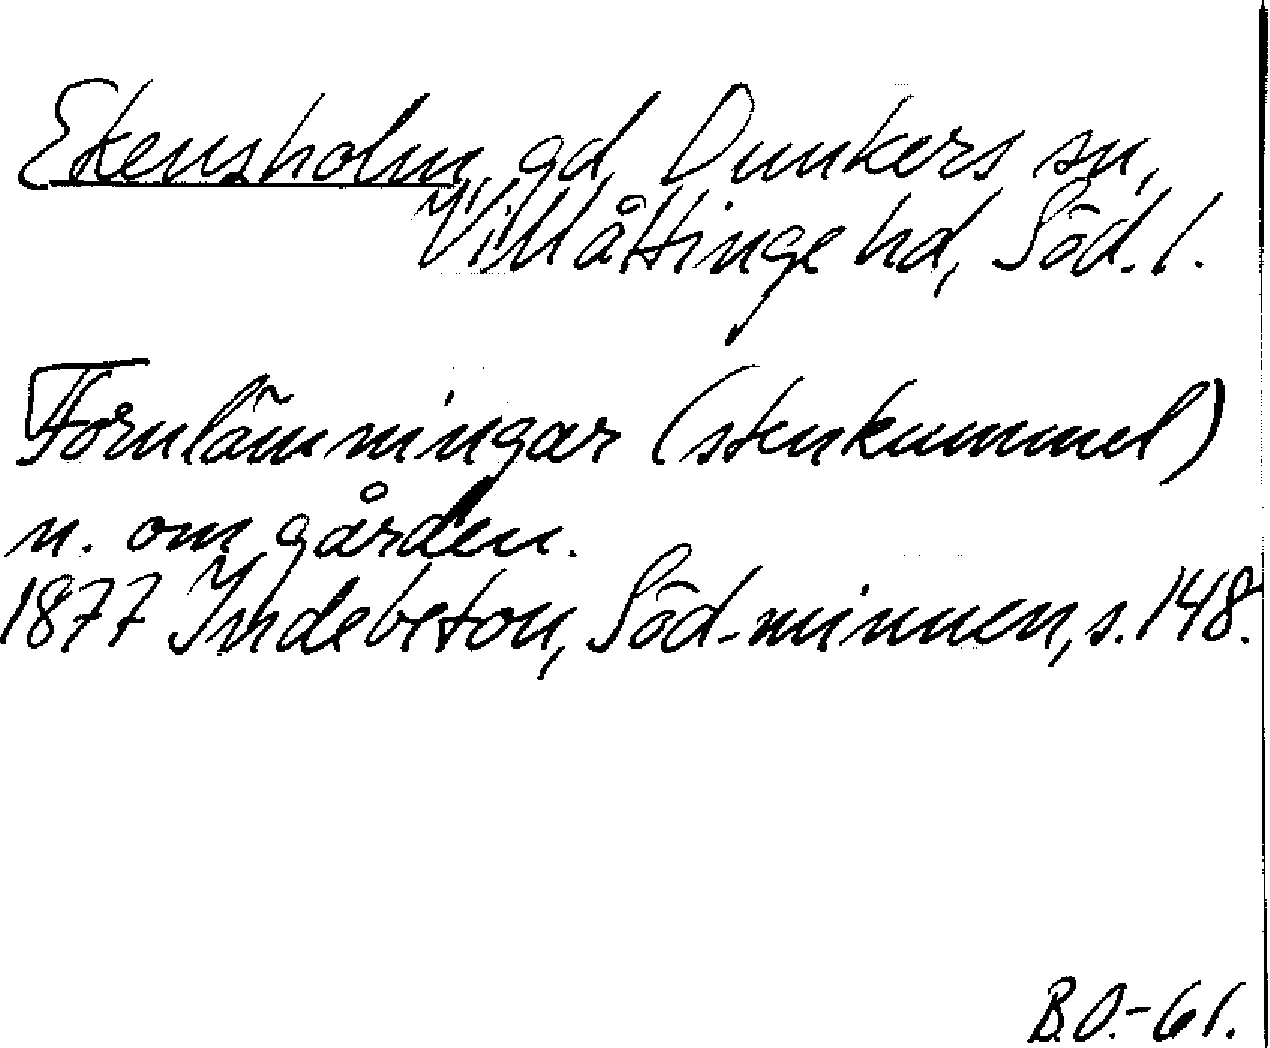 Ekensholm, gd, Dunkers sn,
Villåttinge hd, Söd. l.
Fornlämningar (stenkummel)
n. om gården.
1877 Indebetou, Söd-minnen, s. 148.
B.O.-61.